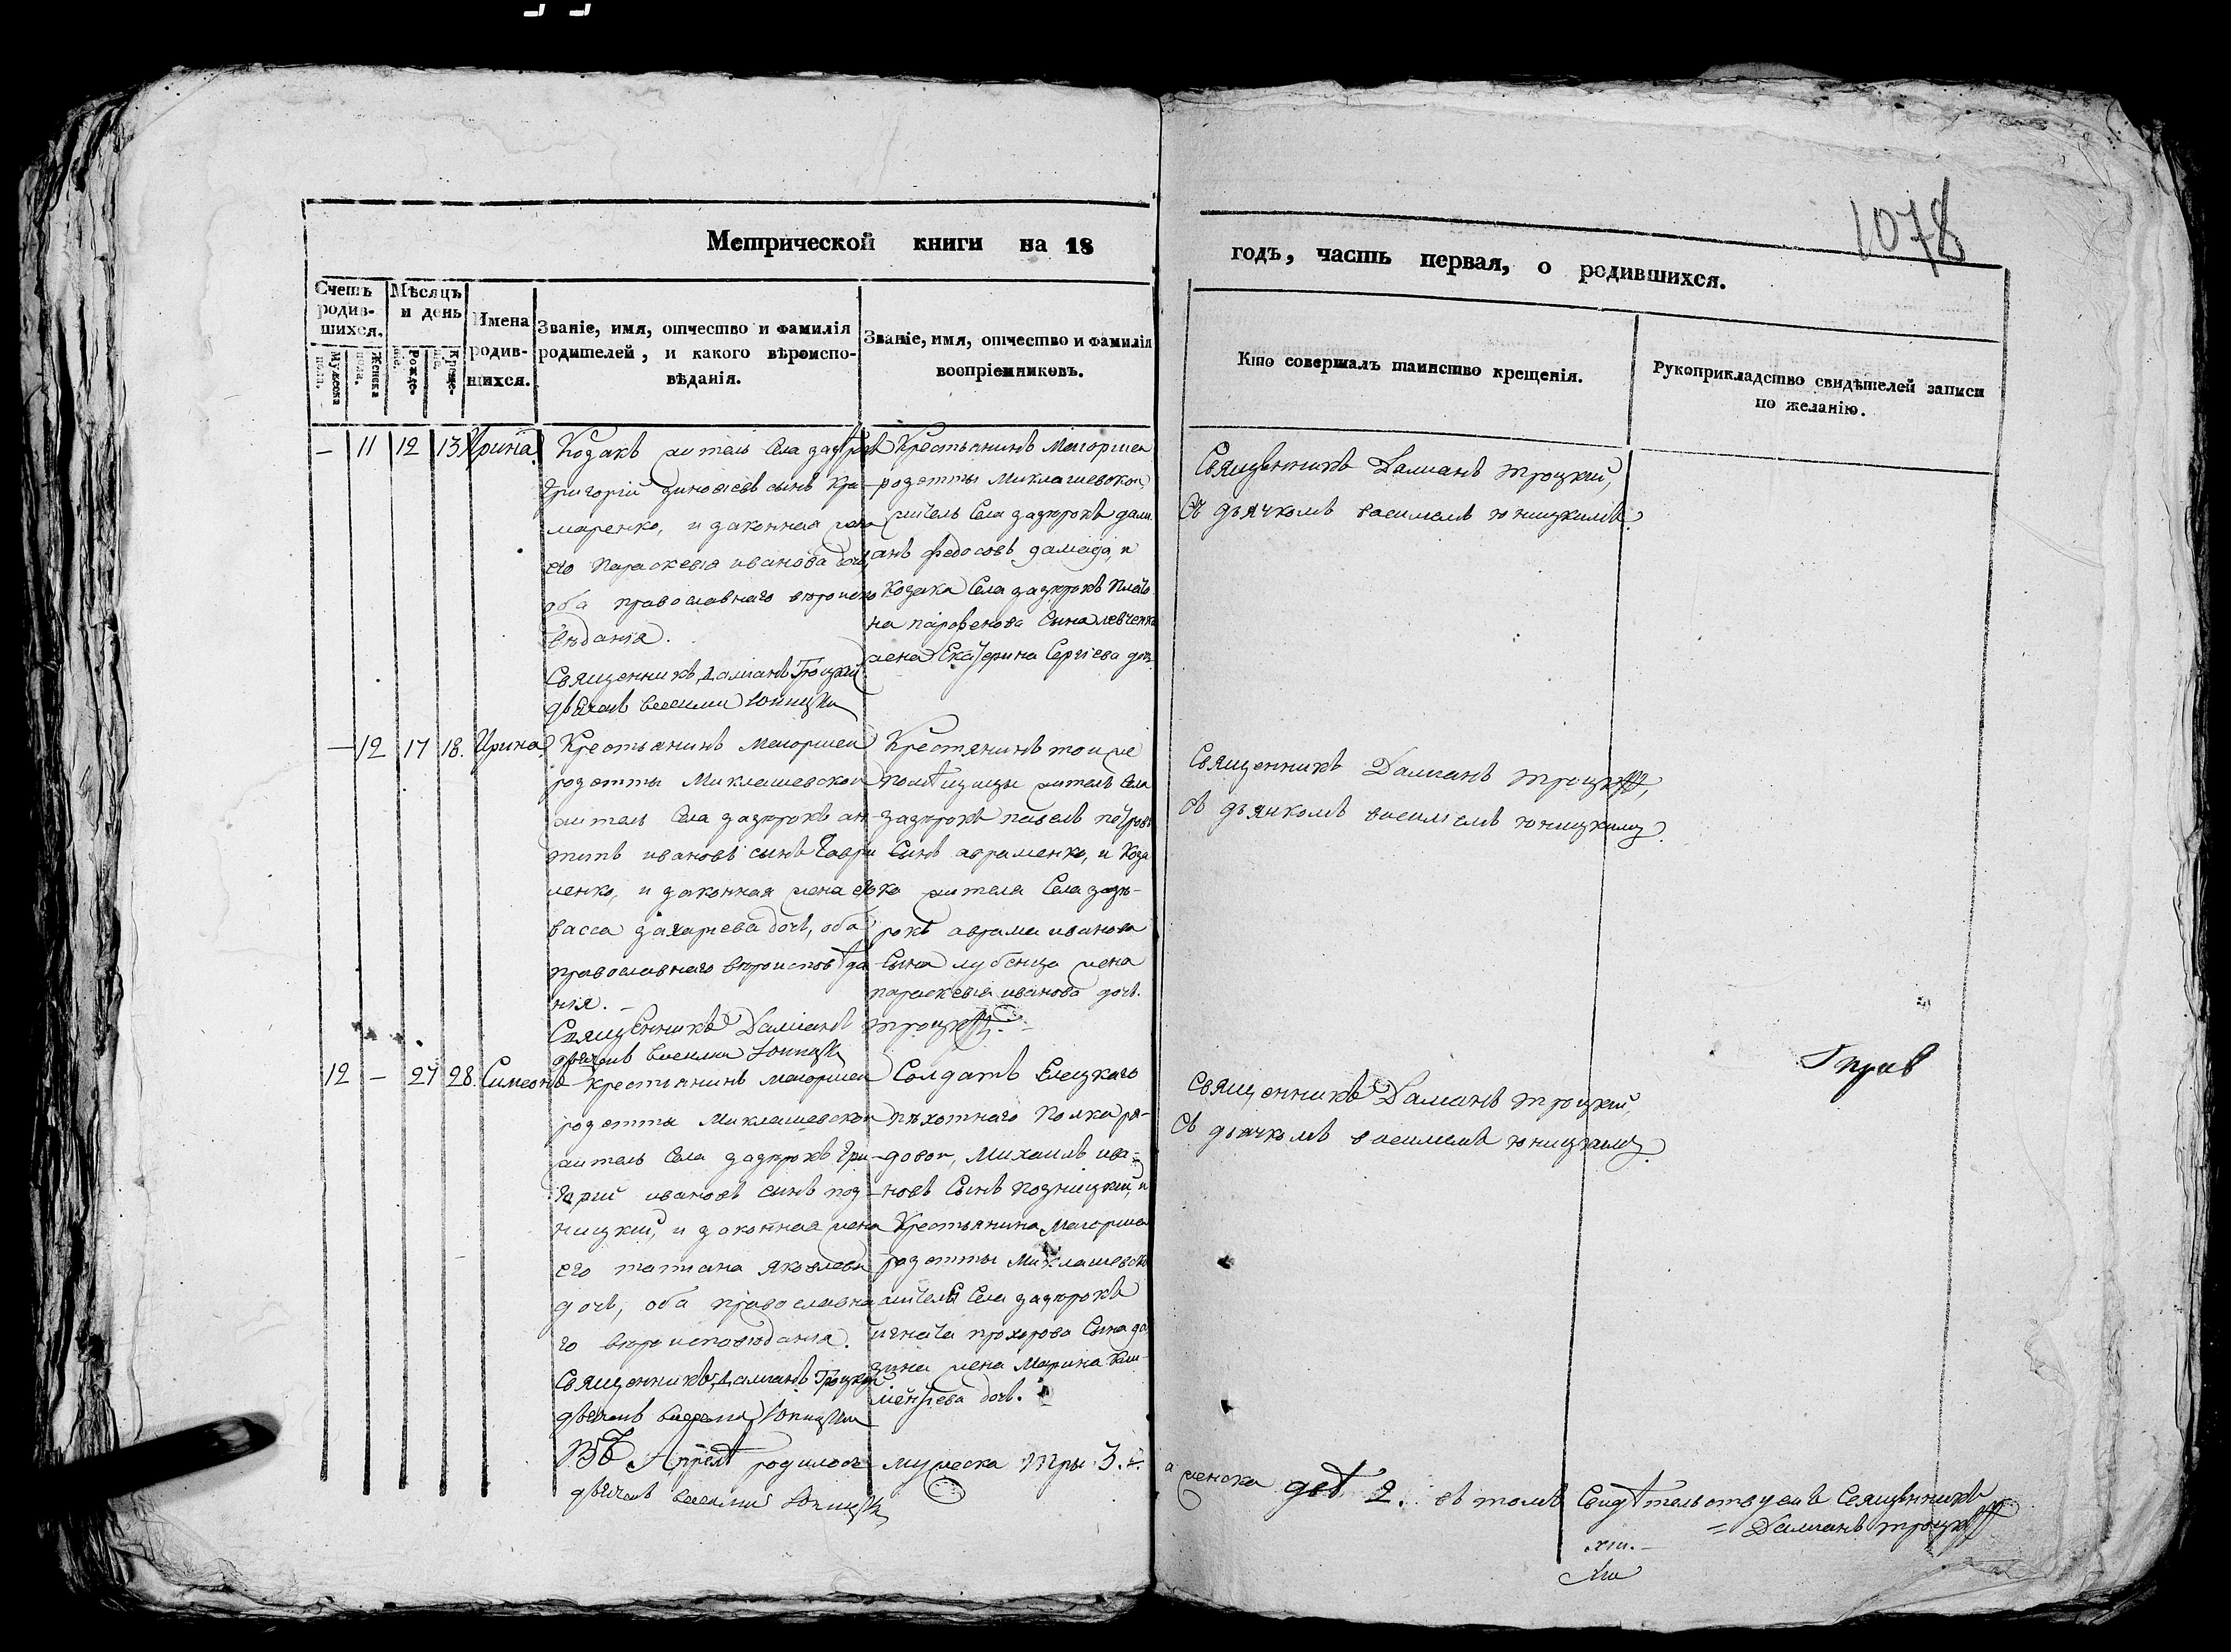 1078
Метрической книги на 18
годъ, часть первая, о родившихся.
Счетъ родив-шихся.
Мужеска пола.
Женска пола.
Мѣсяцъ и день
Рожде-нія.
Креще-нія.
Имена родив-шихся.
Званіе, имя, отчество и фамилія
родителей, и какого вѣроиспо-
вѣданія.
Званіе, имя, отчество и фамилія
воспріемниковъ.
Кто совершалъ таинство крещенія.
Рукоприкладство свидѣтелей записи
по желанію.
— 11 12 13 Ирина
Козакъ житель Села
Григорій Зиновіевъ сынъ Кра-
маренко, и законная жена
его Параскевія иванова дочь,
оба православнаго вѣроиспо
вѣданія.
Священникъ Даміанъ Троцкій
дьячокъ Василій Юницкій
Крестьянинъ Маіорши
розетты Миклашевской,
житель Села задѣрокъ дами
анъ федосовъ, и
Козака Села задѣрокъ Плато
на парфенова Сына левченка
жена Екатерина Сергіева доч.
Священникъ Даміанъ троцкій,
съ дьячкомъ василіемъ юницкимъ.
— 12 17 18. Ирина
Крестьянинъ маіорши
розетты Миклашевской
житель Села задѣрокъ ан
типъ ивановъ сынъ Гаври
ленко, и законная жена его
васса захаріева дочь, оба
православнаго вѣроисповѣда
нія. —
Священникъ Даміанъ троцкій.
дьячокъ Василій Юницкій
Крестянинъ тои же
помѣщицы житель Села
задѣрокъ павелъ петровъ
Сынъ авраменко, и Коза
ка жителя Села задѣ-
рокъ аврама иванова
Сына лубенца жена
параскевія иванова дочь.
Священникъ Даміанъ троцкій,
съ дьячкомъ василіемъ юницкимъ.
12 — 27 28. Симеонъ
Крестьянинъ маіорши
розетты Миклашевской
житель Села задѣрокъ Гри
горій ивановъ сынъ поз-
ницкій, и законная жена
его татіана яковлева
дочь, оба православна
го вѣроисповѣданія.
Священникъ Даміанъ Троцкій
дьячокъ Василій Юницкій
Солдатъ Елецкаго
пѣхотнаго Полка ря-
довой, Михаилъ ива-
новъ Сынъ Позницкій, и
Крестьянина Маіорши
розетты Миклашевской
жителя Села задѣрокъ
игната прохорова Сына
жена Марина Кли-
ментіева дочь.
Священникъ Даміанъ троцкій,
съ дьячкомъ василіемъ юницкимъ.
Въ Апрелѣ родилось мужеска три 3. а женска двѣ 2. въ томъ Свидѣтельствуемъ Священникъ
Даміанъ троцкій
дьячокъ Василій Юницкій